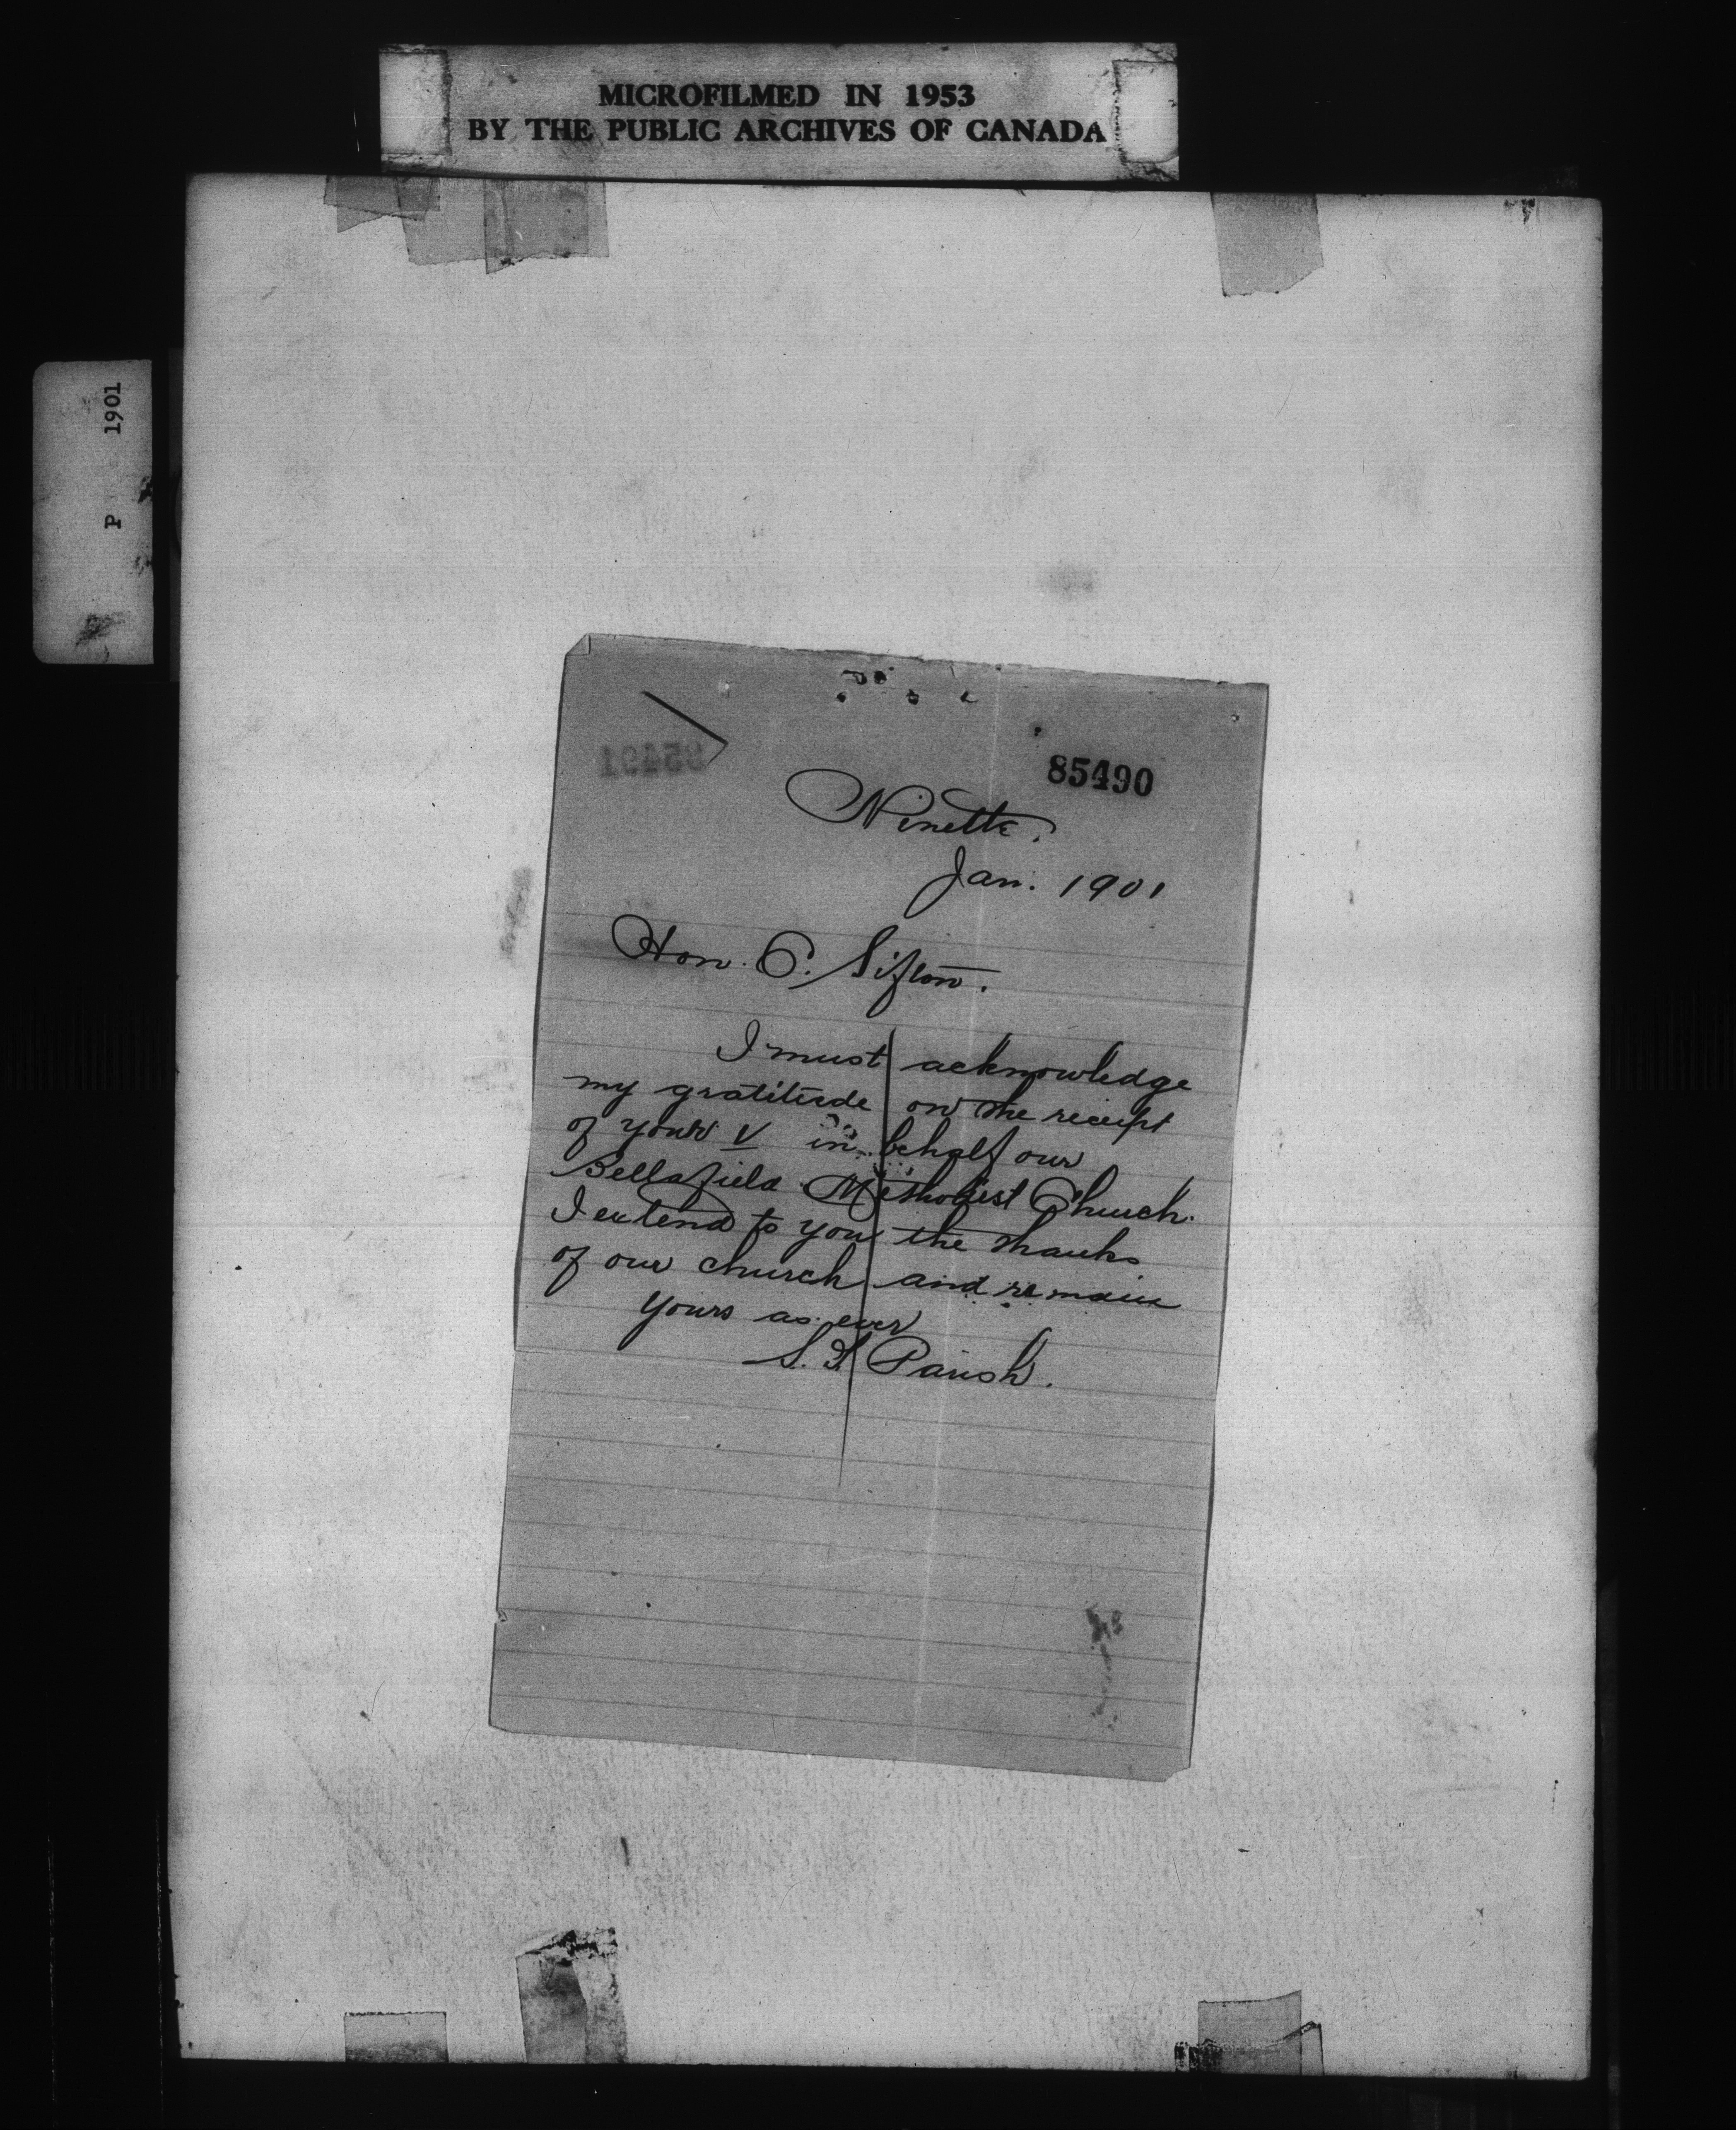 MICROFILMED IN 1953
BY THE PUBLIC ARCHIVES OF CANADA
P 1901
85491
85490
Ninette.
Jan. 1901
Hon. C. Sifton.
I must acknowledge
my gratitude on the receipt
of your V in behalf our
Bellafield Methodist Church.
I extend to you the thanks
of our church and remain
Yours as ever
S. F. Parish.